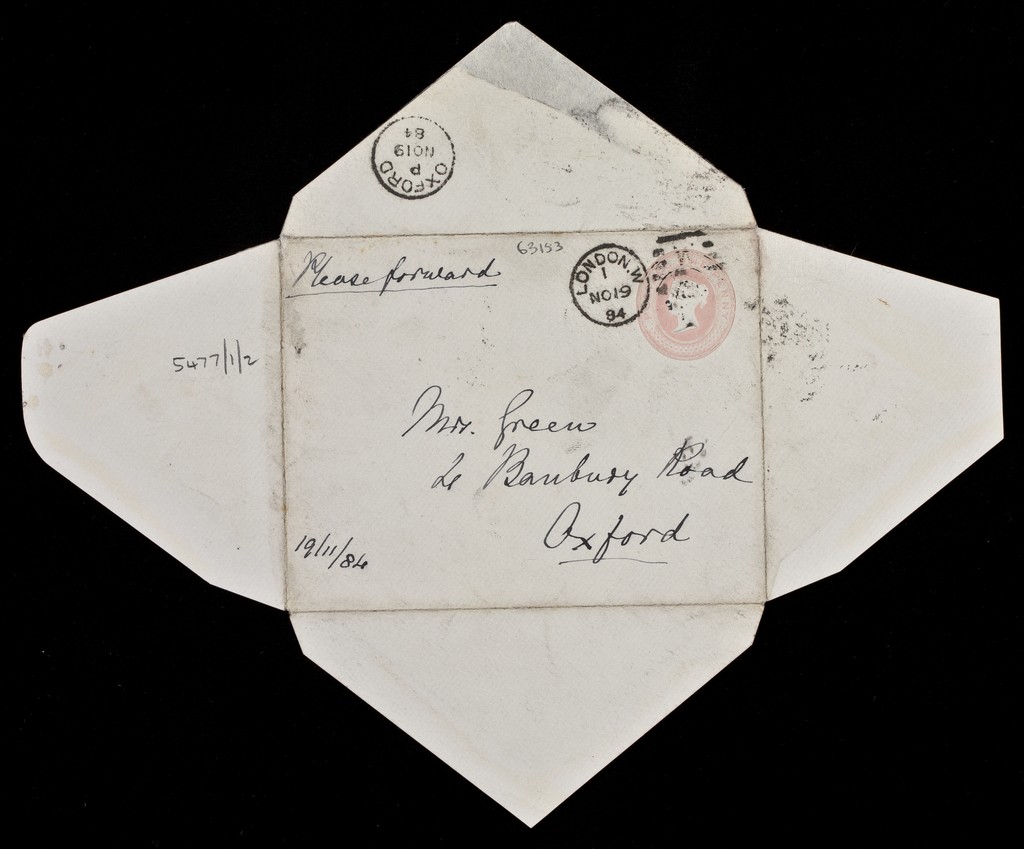 OXFORD
P
NO19
84
63193
Please forward
LONDON.W
1
NO19
84
5477/1/2
Mrs. Green
Banbury Road
Oxford
19/11/84